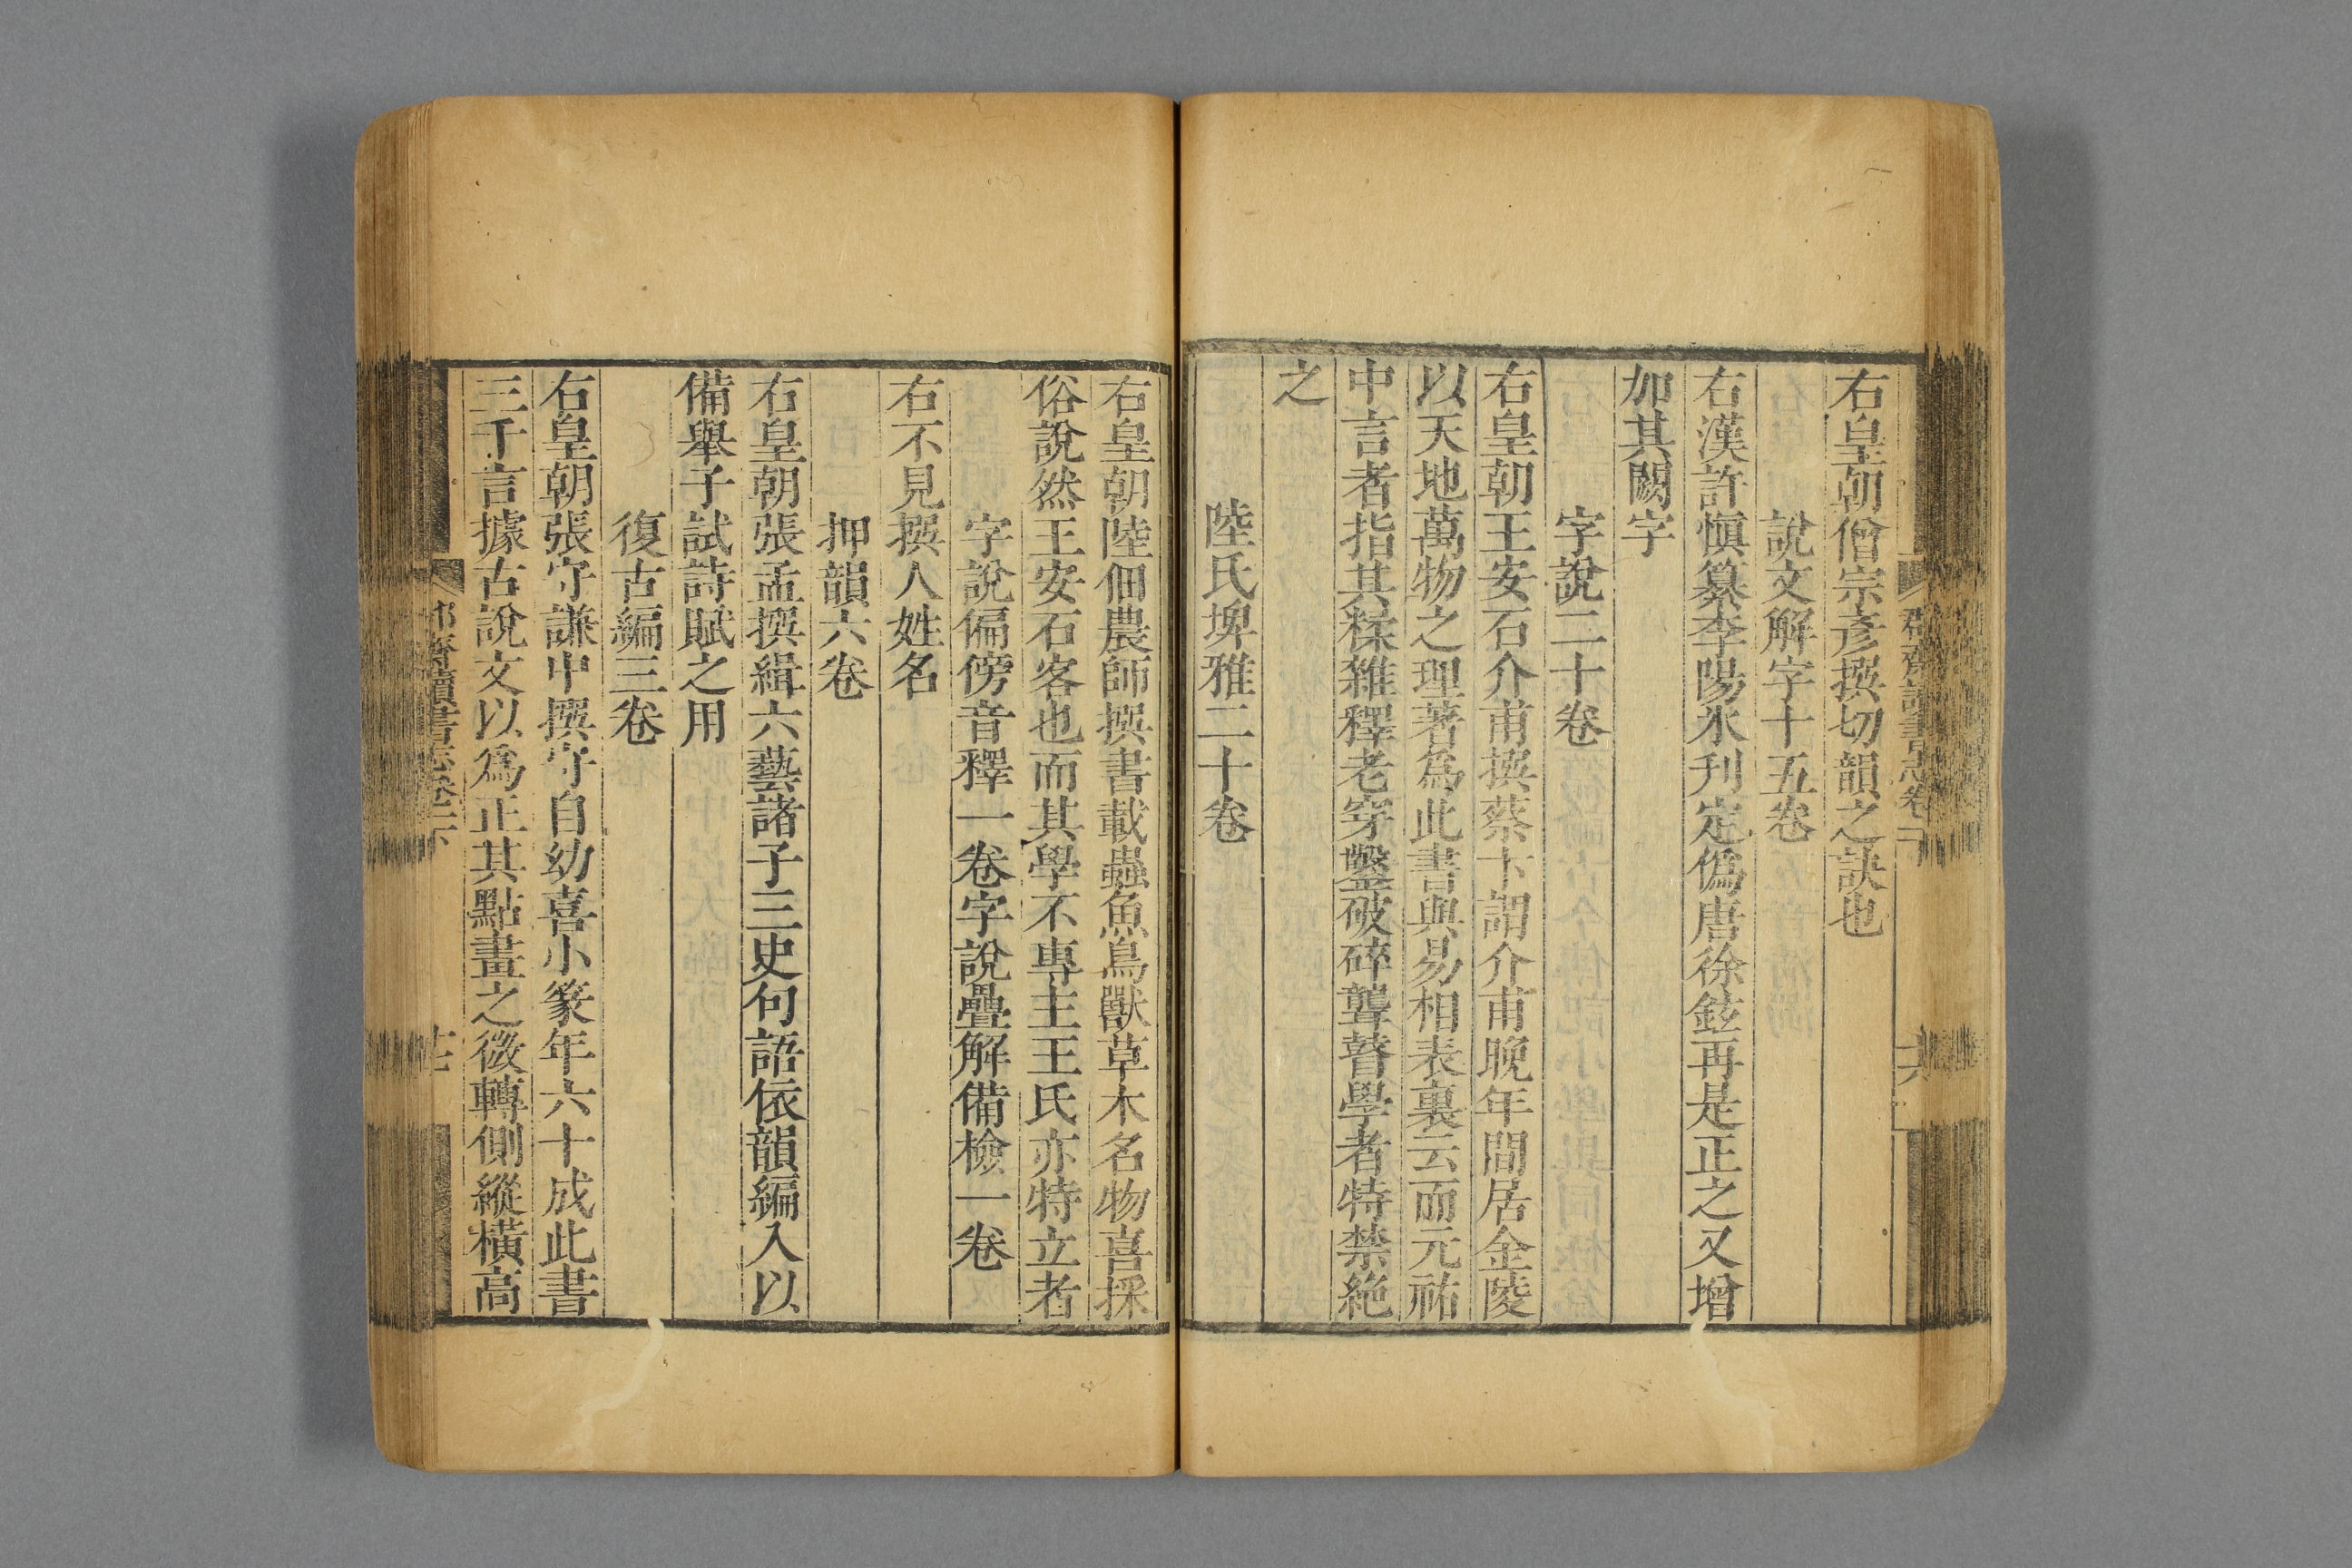 右皇朝僧宗彥撰切韻之訣也
說文解字十五卷
右漢許愼纂李陽氷刋定僞唐徐鉉再是正之又增
加其闕字
字說二十卷
右皇朝王安石介甫撰蔡卞謂介甫晚年閒居金陵
以天地萬物之理著爲此書與易相表裏云而元祐
中言者指其糅雜釋老穿鑿破碎聾瞽學者特禁絶
之
陸氏埤雅二十卷
右皇朝陸佃農師撰書載蟲魚鳥獸草木名物喜採
俗說然王安石客也而其學不專主王氏亦特立者
字說偏傍音釋一卷字說疊解備檢一卷
右不見撰人姓名
押韻六卷
右皇朝張孟撰緝六藝諸子三史句語依韻編入以
備舉子試詩賦之用
復古編三卷
右皇朝張守謙中撰守自幼喜小篆年六十成此書
三千言據古說文以爲正其點畫之微轉側縱橫高